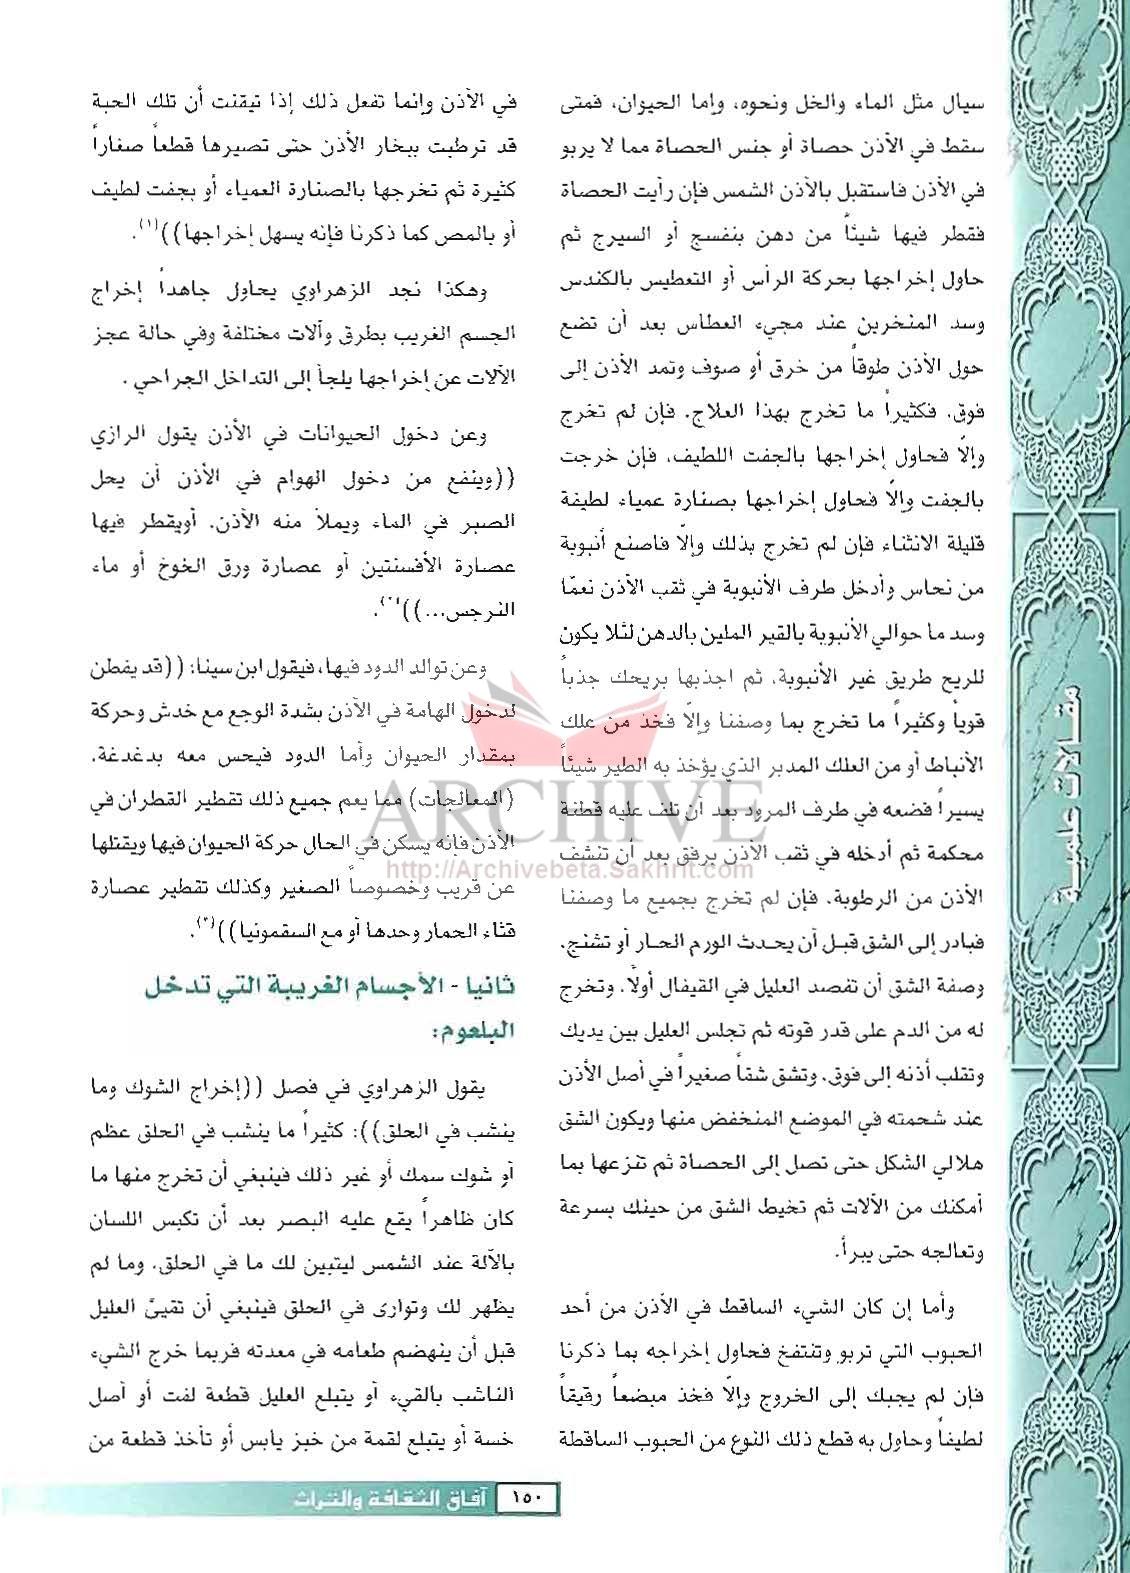 سيال مثل الماء والخل ونحوه، وإما الحيوان، فمتى
سقط في الأذن حصاة أو جنس الحصاة مما لا يربو
في الأذن فاستقبل بالأذن الشمس فإن رأيت الحصاة
فقطر فيها شيئاً من دهن بنفسج أو السيرج ثم
حاول إخراجها بحركة الرأس أو التعطيس بالكندس
وسد المنخرين عند مجيء العطاس بعد أن تضع
حول الأذن طوقاً من خرق أو صوف وتمد الأذن إلى
فوق. فكثيراً ما تخرج بهذا العلاج. فإن لم تخرج
وإلّا فحاول إخراجها بالجفت اللطيف، فإن خرجت
بالجفت وإلّا فحاول إخراجها بصنارة عمياء لطيفة
قليلة الانثناء فإن لم تخرج بذلك وإلّا فاصنع أنبوبة
من نحاس وأدخل طرف الأنبوبة في ثقب الأذن نعمّا
وسد ما حوالي الأنبوبة بالقير الملين بالدهن لئلا يكون
للريح طريق غير الأنبوبة، ثم اجذبها بريحك جذباً
قوياً وكثيراً ما تخرج بما وصفنا وإلّا فخذ من علك
الأنباط أو من العلك المدبر الذي يؤخذ به الطير شيئاً
يسيراً فضعه في طرف المرود بعد أن تلف عليه قطنة
محكمة ثم أدخله في ثقب الأذن برفق بعد أن تنشف
الأذن من الرطوبة. فإن لم تخرج بجميع ما وصفنا
فبادر إلى الشق قبل أن يحدث الورم الحار أو تشنج.
وصفة الشق أن تفصد العليل في القيفال أولاً. وتخرج
له من الدم على قدر قوته ثم تجلس العليل بين يديك
وتقلب أذنه إلى فوق. وتشق شقاً صغيراً في أصل الأذن
عند شحمته في الموضع المنخفض منها ويكون الشق
هلالي الشكل حتى تصل إلى الحصاة ثم تنزعها بما
أمكنك من الآلات ثم تخيط الشق من حينك بسرعة
وتعالجه حتى يبرأ.
وأما إن كان الشيء الساقط في الأذن من أحد
الحبوب التي تربو وتنتفخ فحاول إخراجه بما ذكرنا
فإن لم يجبك إلى الخروج وإلّا فخذ مبضعاً رقيقاً
لطيفاً وحاول به قطع ذلك النوع من الحبوب الساقطة
في الأذن وإنما تفعل ذلك إذا تيقنت أن تلك الحبة
قد ترطبت ببخار الأذن حتى تصيرها قطعاً صغاراً
كثيرة ثم تخرجها بالصنارة العمياء أو بجفت لطيف
أو بالمص كما ذكرنا فإنه يسهل إخراجها))(١).
وهكذا نجد الزهراوي يحاول جاهداً إخراج
الجسم الغريب بطرق وآلات مختلفة وفي حالة عجز
الآلات عن إخراجها يلجأ إلى التداخل الجراحي .
وعن دخول الحيوانات في الأذن يقول الرازي
((وينفع من دخول الهوام في الأذن أن يحل
الصبر في الماء ويملأ منه الأذن. أويقطر فيها
عصارة الأفسنتين أو عصارة ورق الخوخ أو ماء
النرجس...))(٢).
وعن توالد الدود فيها، فيقول ابن سينا: ((قد يفطن
لدخول الهامة في الأذن بشدة الوجع مع خدش وحركة
بمقدار الحيوان وأما الدود فيحس معه بدغدغة.
(المعالجات) مما يعم جميع ذلك تقطير القطران في
الأذن فإنه يسكن في الحال حركة الحيوان فيها ويقتلها
عن قريب وخصوصاً الصغير وكذلك تقطير عصارة
قثاء الحمار وحدها أو مع السقمونيا))(٣).
ثانيا - الأجسام الغريبة التي تدخل
البلعوم:
يقول الزهراوي في فصل ((إخراج الشوك وما
ينشب في الحلق)): كثيراً ما ينشب في الحلق عظم
أو شوك سمك أو غير ذلك فينبغي أن تخرج منها ما
كان ظاهراً يقع عليه البصر بعد أن تكبس اللسان
بالآلة عند الشمس ليتبين لك ما في الحلق. وما لم
يظهر لك وتوارى في الحلق فينبغي أن تقيئ العليل
قبل أن ينهضم طعامه في معدته فربما خرج الشيء
الناشب بالقيء أو يتبلع العليل قطعة لفت أو أصل
خسة أو يتبلع لقمة من خبز يابس أو تأخذ قطعة من
مقالات علمية
ARCHIVE
http://Archivebeta.Sakhrit.com
١٥٠ آفاق الثقافة والتراث